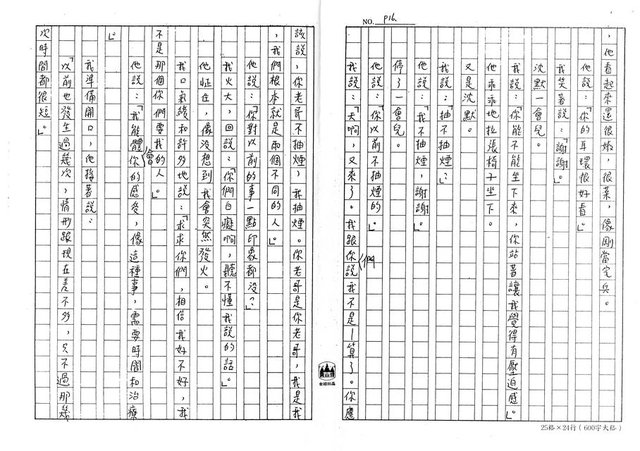 NO. P16
，他看起來還很嫩，很菜，像剛當完兵。
他說：「你的耳環很好看。」
我笑著說：「謝謝。」
沈默一會兒。
我說：「你能不能坐下來，你站著讓我覺得有壓迫感。」
他乖乖地拉張椅子坐下。
又是沈默。
我說：「抽煙？」
他說：「我不抽煙，謝謝。」
停了一會兒。
他說：「你以前不抽煙的。」
我說：「天啊，又來了。我跟你們說我不是－算了。你應
該說，你老哥不抽煙，我抽煙。你老哥是你老哥，我是我
，我們根本就是兩個不同的人。」
他說：「你對以前的事一點印象都沒？」
我火大，回說：「你們白癡啊，聽不懂我說的話。」
他怔在，像沒想到我會突然發火。
我口氣緩和許多地說：「求求你們，相信我好不好，我
不是那個你們要我的人。」
他說：「我能體會你的感受，像這種事，需要時間和治療
。」
我準備開口，他接著說：
「以前也發生過幾次，情形跟現在差不多，只不過那幾
次時間都很短。」
25格×24行（600字大格）